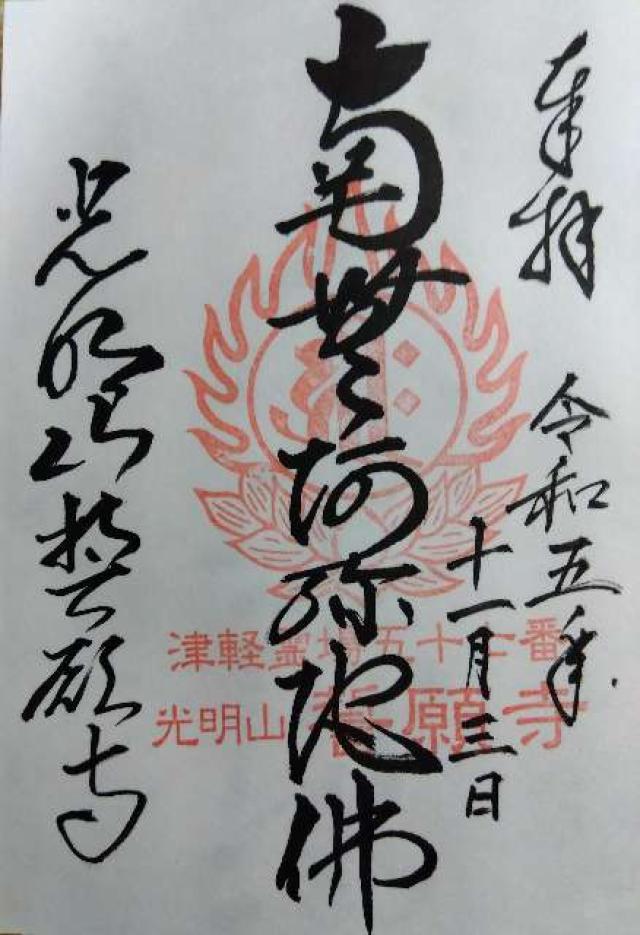 奉拝
令和五年
十一月三日
南無阿弥陀佛
光明山誓願寺
津軽霊場五十七番
光明山 誓願寺